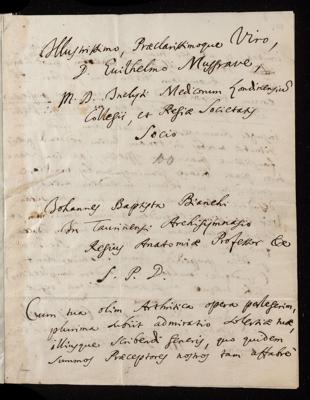 Illustrissimo, Præclarissimoque Viro,
D. Guilhelmo Musgrave,
M. D. Inclyti Medicorum Londinensium
Collegii, et Regiæ Societatis
Socio
Iohannes Baptista Bianchi
In Taurinensi Archigymnasio
Regius Anatomiæ Professor &c
S. P. D.
Cum tua olim Arthritica opera perlegerim,
plurima subiit admiratio solertiæ tuæ,
illiusque scribendi generis, quo quidem
summos Præceptores nostros tam affabrè